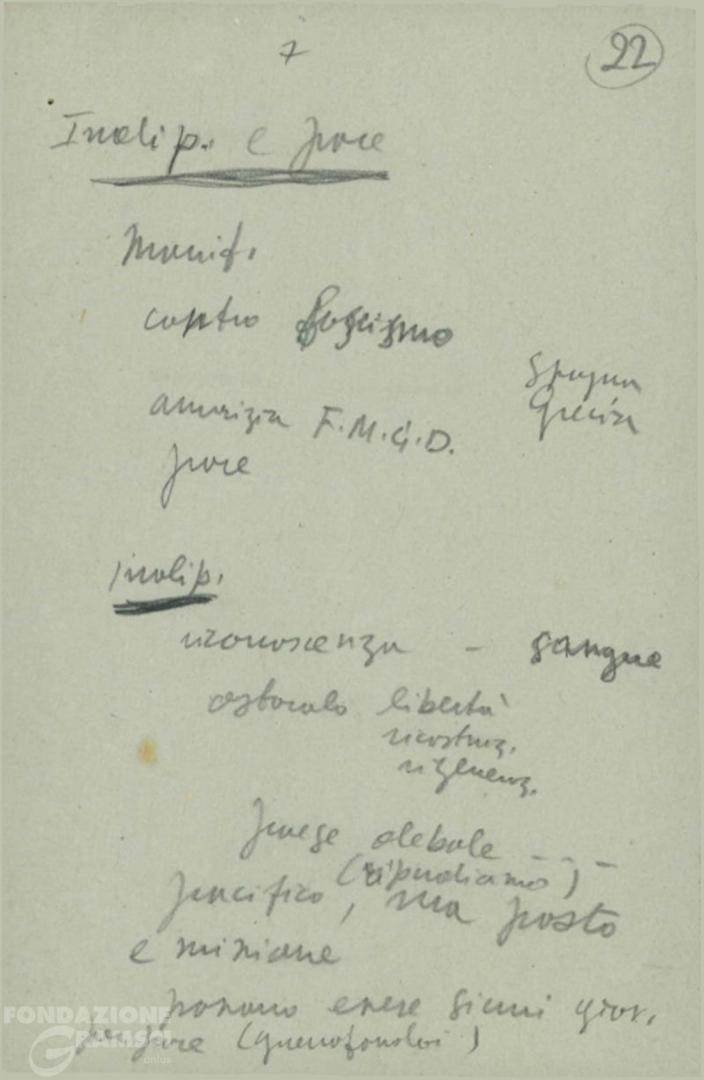 7
22
Indip. e pace
Manif.
contro fascismo
Spagna
Grecia
amicizia F.M.G.D.
pace
Indip.
riconoscenza - sangue
ostacolo libertà
ricostruz.
rigeneraz.
paese debole - - -
(ripudiamo)
pacifico, ma posto
e missione
possano essere sicuri giov.
per pace (guerrafondai)
FONDAZIONE
GRAMSCI
onlus